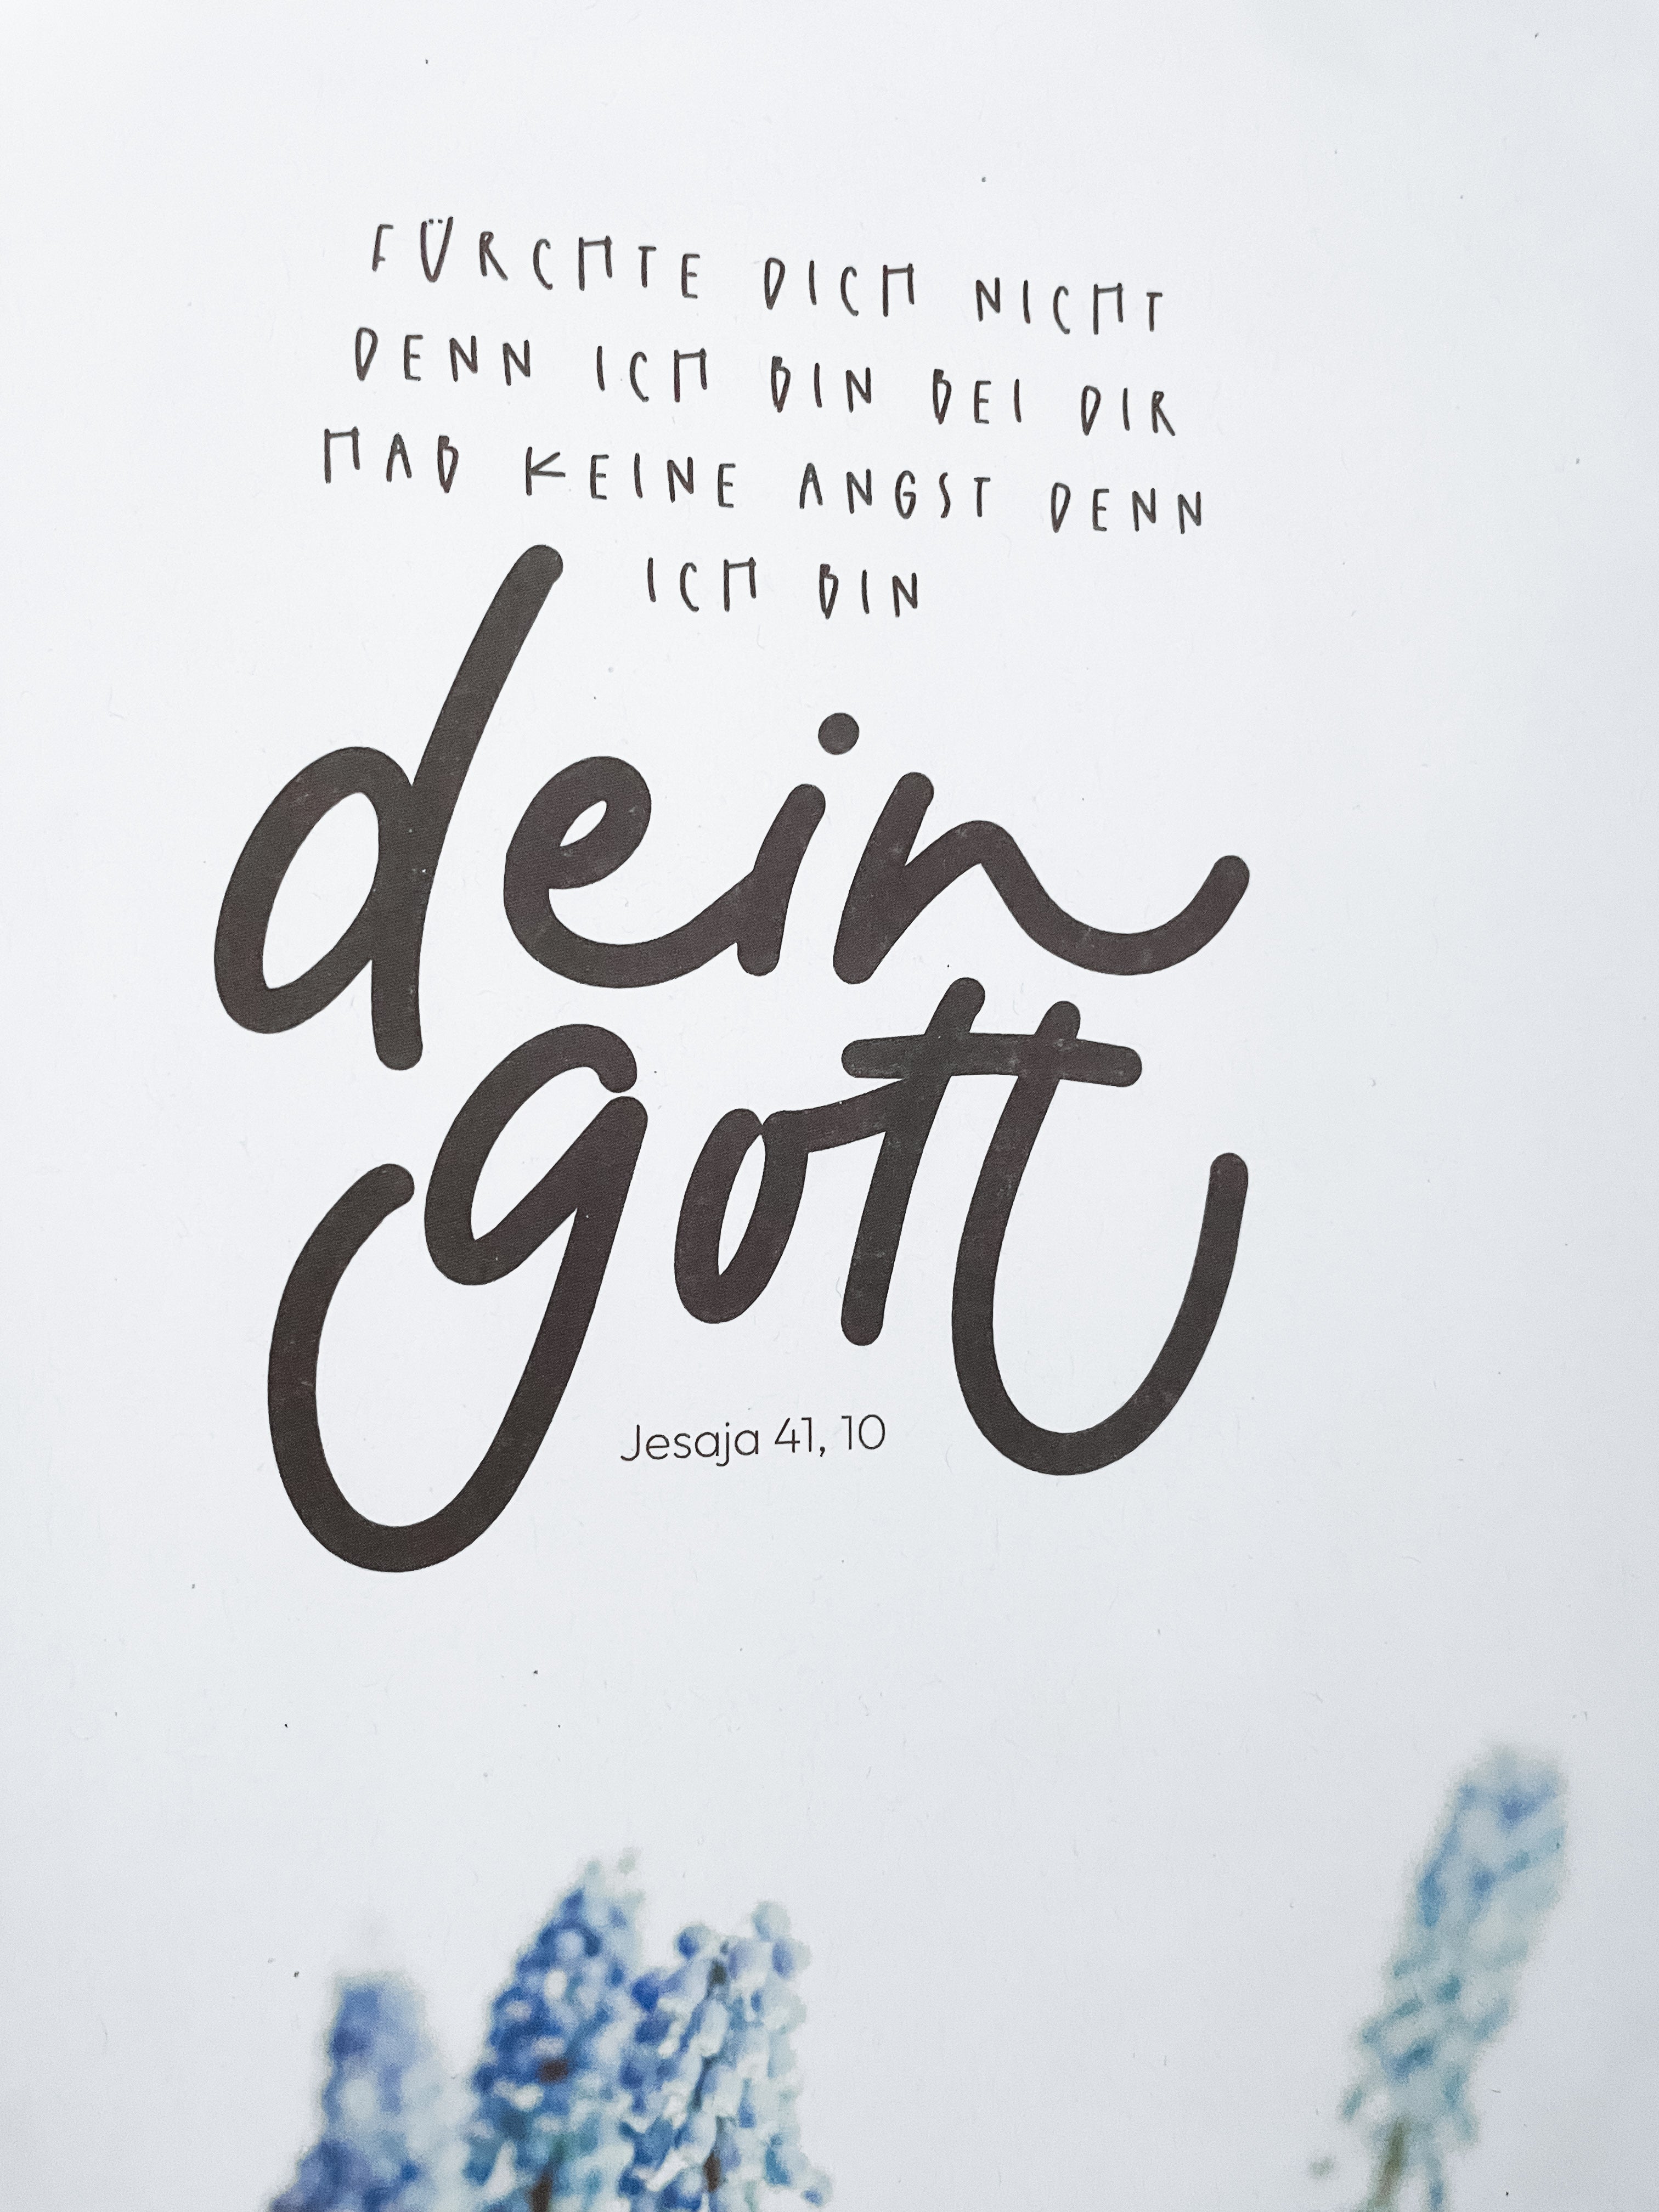 FÜRCHTE DICH NICHT
DENN ICH BIN BEI DIR
HAB KEINE ANGST DENN
ICH BIN
dein
gott
Jesaja 41, 10